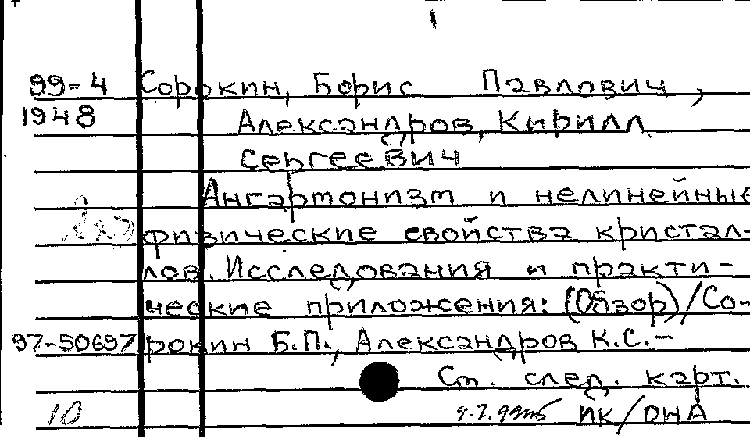 99-4 Сорокин, Борис Павлович,
1948 Александров, Кирилл
Сергеевич
Ангартонизм и нелинейные
физические свойства кристал-
лов. Исследования и практи-
ческие приложения: (Обзор)/Со-
97-50697 рокин Б.П., Александров К.С.-
См. след. карт.
10 ПК/ОНА